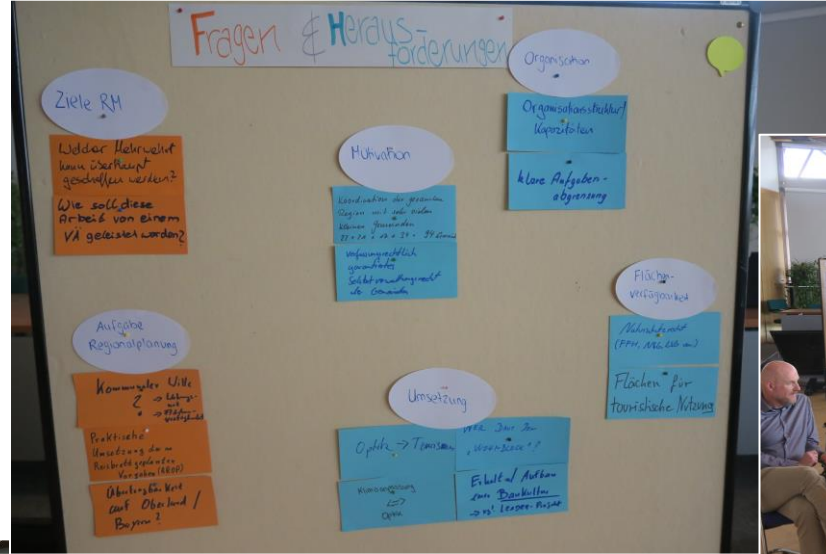 Fragen & Heraus-
forderungen
Ziele RM
Welcher Mehrwehrt
kann überhaupt
geschaffen werden?
Wie soll diese
Arbeit von einem
VÄ geleistet worden?
Motivation
Koordination der gesamten
Region mit sehr vielen
kleinen Gemeinden
verfassungsrechtlich
garantiertes
Selbstverwaltungsrecht
der Gemeinden
Organisation
Organisationsstruktur/
Kapazitäten
klare Aufgaben-
abgrenzung
Flächen-
verfügbarkeit
Naturschutzrecht
Flächen für
touristische Nutzung
Aufgabe
Regionalplanung
Kommunaler Wille
?
Praktische
Umsetzung der am
Reisbrett geplanten
Vorgaben (RROP)
Übertragbarkeit
auf Oberland /
Bayern?
Umsetzung
Optik → Tourismus
Klimaanpassung
<=>
Optik
Erhalt / Aufbau
von Baukultur
→ Leader-Projekt